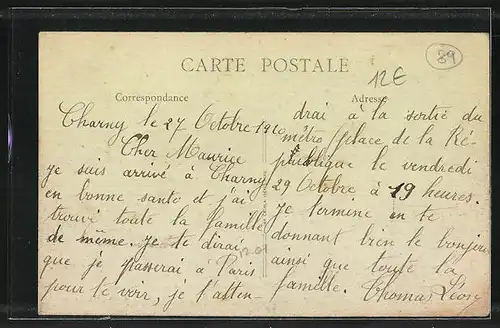 CARTE POSTALE
12€
89
Correspondance
Adresse
Charny le 27 Octobre 1920
Cher Maurice
je suis arrivé à Charny
en bonne santé et j'ai
trouvé toute la famille
de même. je te dirai
que je passerai à Paris
pour te voir, je t'atten-
drai à la sortie du
métro (place de la Ré-
publique le vendredi
29 Octobre à 19 heures.
je termine en te
donnant bien le bonjour
ainsi que toute la
famille. Thomas Léon